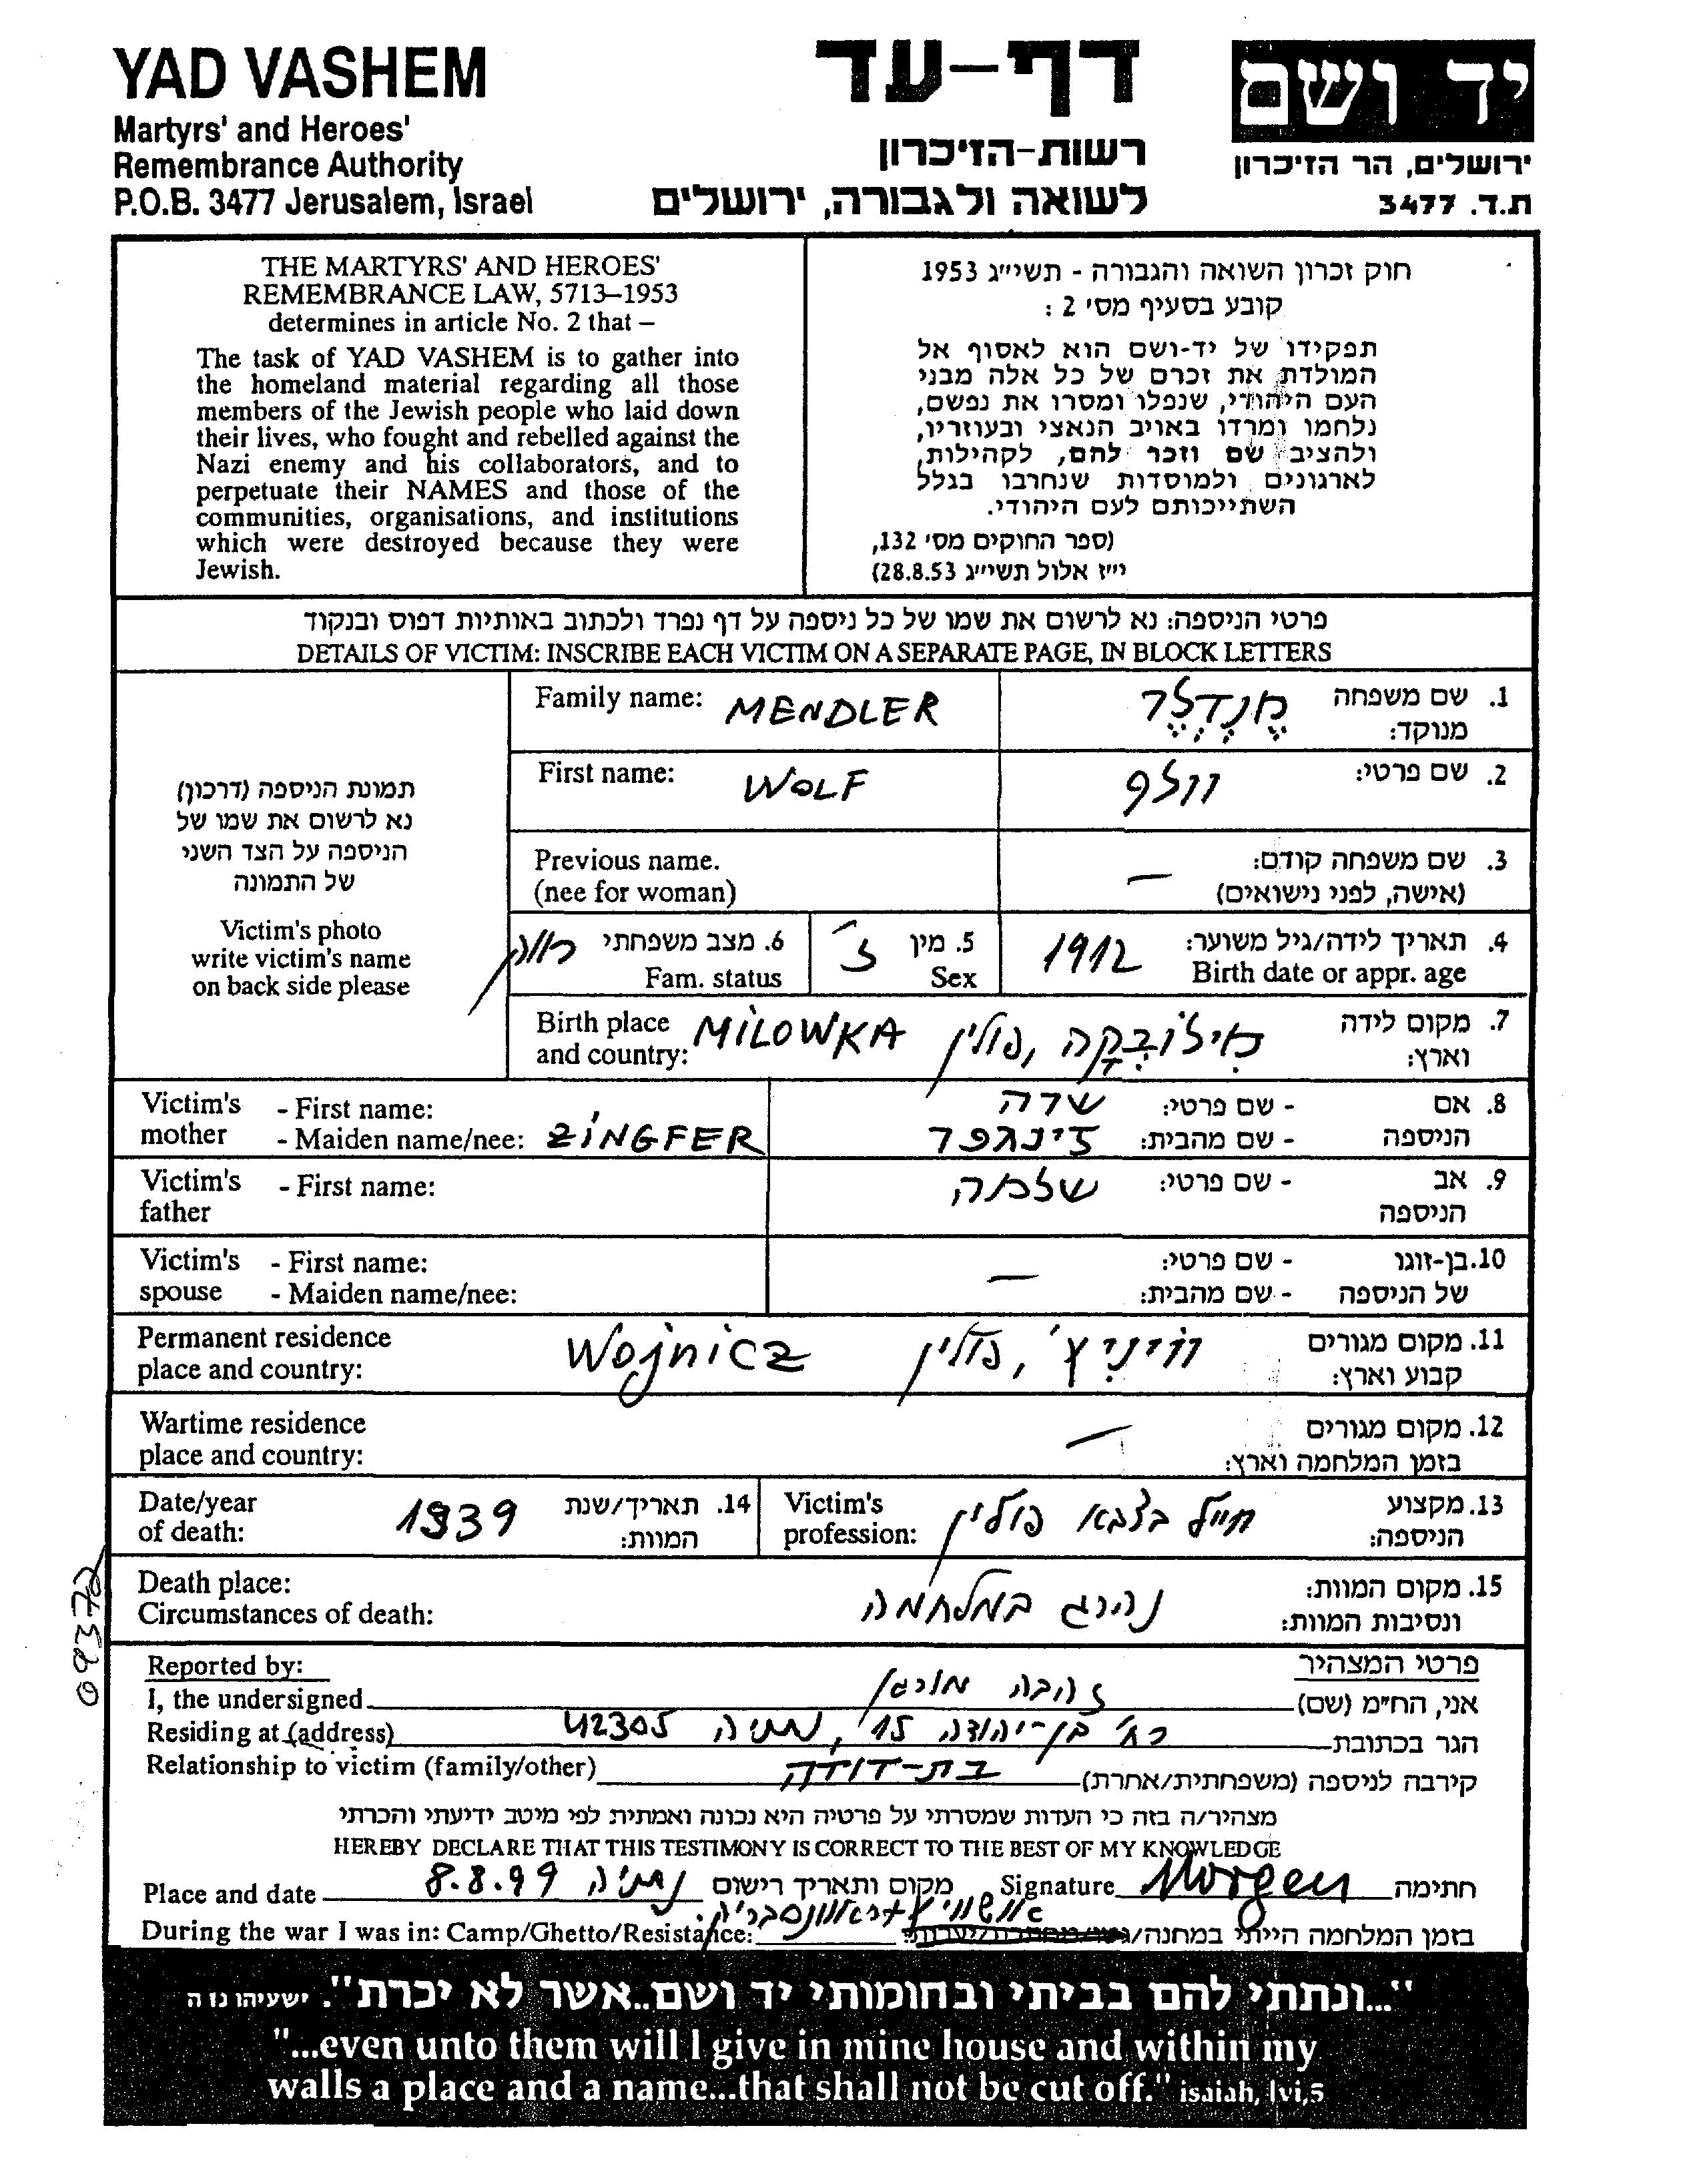 YAD VASHEM
Martyrs' and Heroes'
Remembrance Authority
P.O.B. 3477 Jerusalem, Israel
דף-עד
רשות-הזיכרון
לשואה ולגבורה, ירושלים
יד ושם
ירושלים, הר הזיכרון
ת.ד. 3477
THE MARTYRS' AND HEROES'
REMEMBRANCE LAW, 5713–1953
determines in article No. 2 that –
The task of YAD VASHEM is to gather into
the homeland material regarding all those
members of the Jewish people who laid down
their lives, who fought and rebelled against the
Nazi enemy and his collaborators, and to
perpetuate their NAMES and those of the
communities, organisations, and institutions
which were destroyed because they were
Jewish.
חוק זכרון השואה והגבורה - תשי״ג 1953
קובע בסעיף מס׳ 2 :
תפקידו של יד-ושם הוא לאסוף אל
המולדת את זכרם של כל אלה מבני
העם היהודי, שנפלו ומסרו את נפשם,
נלחמו ומרדו באויב הנאצי ובעוזריו,
ולהציב שם וזכר להם, לקהילות,
לארגונים ולמוסדות שנחרבו בגלל
השתייכותם לעם היהודי.
(ספר החוקים מס׳ 132,
י״ז אלול תשי״ג 28.8.53)
פרטי הניספה: נא לרשום את שמו של כל ניספה על דף נפרד ולכתוב באותיות דפוס ובנקוד
DETAILS OF VICTIM: INSCRIBE EACH VICTIM ON A SEPARATE PAGE, IN BLOCK LETTERS
תמונת הניספה (דרכון)
נא לרשום את שמו של
הניספה על הצד השני
של התמונה
Victim's photo
write victim's name
on back side please
Family name: MENDLER מֶנְדְלֶר 1. שם משפחה
מנוקד:
First name: WOLF וולף 2. שם פרטי:
Previous name. — 3. שם משפחה קודם:
(nee for woman) (אישה, לפני נישואים)
רווק 6. מצב משפחתי ז׳ 5. מין 1912 4. תאריך לידה/גיל משוער:
Fam. status Sex Birth date or appr. age
Birth place MILOWKA מִילוֹבְקָה, פולין 7. מקום לידה
and country: וארץ:
Victim's - First name: שרה - שם פרטי: 8. אם
mother - Maiden name/nee: ZINGFER זינגפר - שם מהבית: הניספה
Victim's - First name: שלמה - שם פרטי: 9. אב
father הניספה
Victim's - First name: — - שם פרטי: 10. בן-זוגו
spouse - Maiden name/nee: - שם מהבית: של הניספה
Permanent residence Wojnicz ווֹיניץ׳, פולין 11. מקום מגורים
place and country: קבוע וארץ:
Wartime residence — 12. מקום מגורים
place and country: בזמן המלחמה וארץ:
Date/year 1939 14. תאריך/שנת Victim's חייל בצבא פולין 13. מקצוע
of death: המוות: profession: הניספה:
Death place: נהרג במלחמה 15. מקום המוות:
Circumstances of death: ונסיבות המוות:
Reported by: פרטי המצהיר
I, the undersigned זהבה מורגן אני, הח״מ (שם)
Residing at (address) רח׳ בן-יהודה 15, נתניה 42305 הגר בכתובת
Relationship to victim (family/other) בת-דודה קירבה לניספה (משפחתית/אחרת)
מצהיר/ה בזה כי העדות שמסרתי על פרטיה היא נכונה ואמתית לפי מיטב ידיעתי והכרתי
HEREBY DECLARE THAT THIS TESTIMONY IS CORRECT TO THE BEST OF MY KNOWLEDGE
Place and date 8.8.99 נתניה מקום ותאריך רישום Signature Morgen חתימה
During the war I was in: Camp/Ghetto/Resistance: בזמן המלחמה הייתי במחנה/
"...ונתתי להם בביתי ובחומותי יד ושם..אשר לא יכרת". ישעיהו נו ה
"...even unto them will I give in mine house and within my
walls a place and a name...that shall not be cut off." isaiah, lvi,5